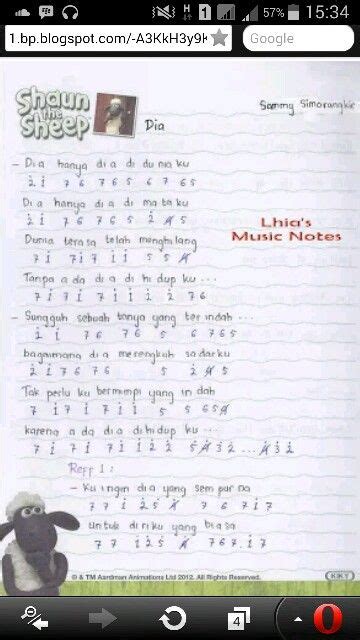 57% 15:34
1.bp.blogspot.com/-A3KkH3y9K
Google
Shaun the Sheep
Sammy Simorangkir
Dia
- Dia hanya dia di duniaku
2̇ 1̇ 7 6 7 6 5 6 7 6 5
Dia hanya dia di mataku
2̇ 1̇ 7 6 7 6 5 2 4̸ 5
Lhia's
Music Notes
Dunia terasa telah menghilang
7 1̇ 7 1̇ 7 1̇ 1̇ 5 5 4̸
Tanpa ada dia di hidup ku ...
7 1̇ 7 1̇ 7 1̇ 1̇ 2̇ 2̇ 7 6
- Sungguh sebuah tanya yang terindah ...
2̇ 1̇ 7 6 7 6 5 6 7 6 5
bagaimana dia merengkuh sadarku
2̇ 1̇ 7 6 7 6 5 2 4̸ 5
Tak perlu ku bermimpi yang indah
7 1̇ 7 1̇ 7 1̇ 1̇ 5 5 6 5 4̸
karena ada dia dihidup ku ...
7 1̇ 7 1̇ 7 1̇ 1̇ 2̇ 2̇ 5̇ 4̸̇ 3̇ 2̇ ... 4̸̇ 3̇ 2̇
Reff 1 :
- Ku ingin dia yang sempurna
7 7 1̇ 2̇ 5 4̸ 7 6 7 1̇ 7
untuk diriku yang biasa
7 7 1̇ 2̇ 5 4̸ 7 6 7 1̇ 7
© & TM Aardman Animations Ltd 2012. All Rights Reserved.
KIKY
4